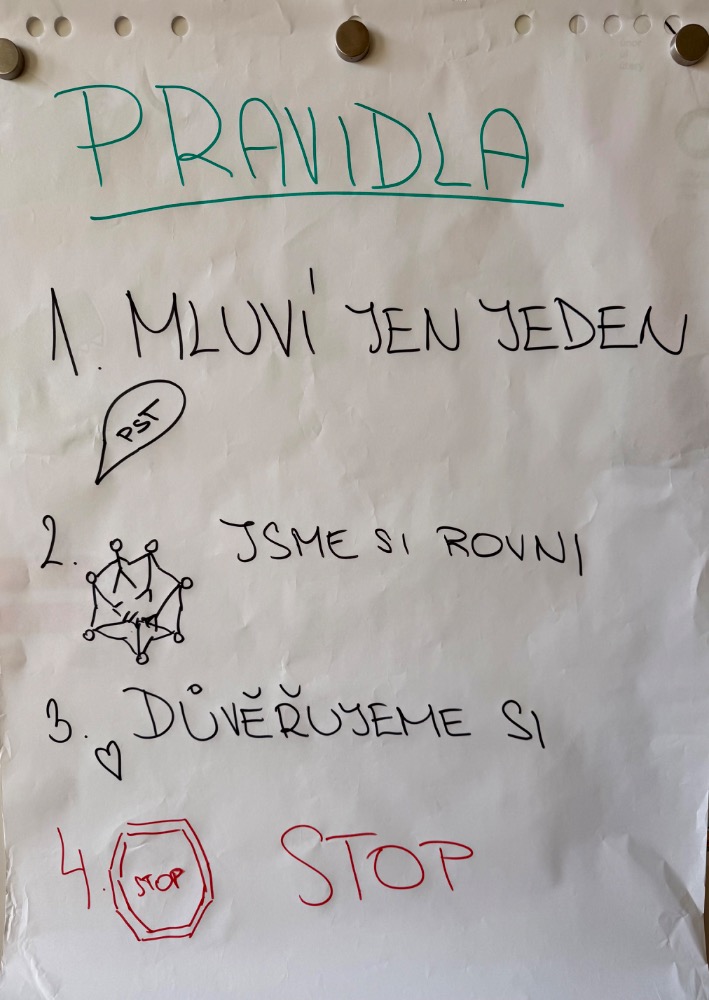 PRAVIDLA
1. MLUVÍ JEN JEDEN
PST
2. JSME SI ROVNI
3. DŮVĚŘUJEME SI
4. STOP STOP